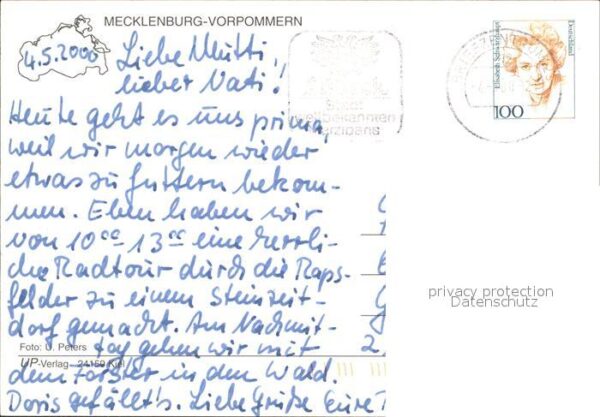 MECKLENBURG-VORPOMMERN
4.5.2000
Liebe Mutti,
lieber Vati!
Heute geht es uns prima,
weil wir morgen wieder
etwas zu futtern bekom-
men. Eben haben wir
von 10⁰⁰ - 13⁰⁰ eine herrli-
che Radtour durch die Raps-
felder zu einem Steinzeit-
dorf gemacht. Am Nachmit-
tag gehen wir mit
dem Förster in den Wald.
Doris gefällt's. Liebe Grüße Eure
Foto: U. Peters
UP-Verlag 24159 Kiel
Elisabeth Schwarzhaupt
Deutschland
100
privacy protection
Datenschutz